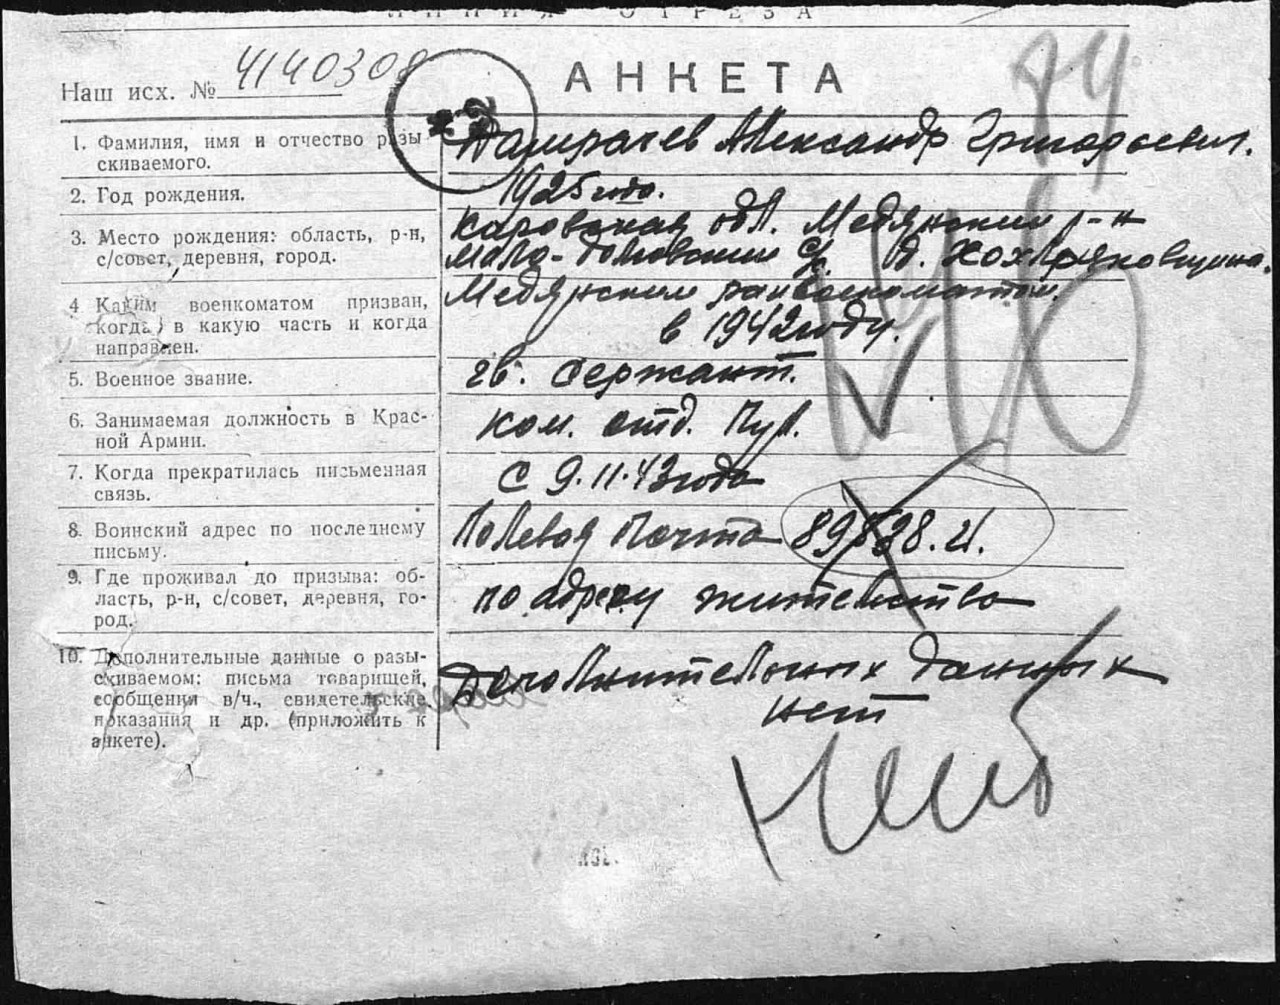 ЛИНИЯ ОТРЕЗА
Наш исх. № 4140308
АНКЕТА
1. Фамилия, имя и отчество разы
скиваемого.
Александр Григорьевич.
2. Год рождения.
1925 года.
3. Место рождения: область, р-н,
с/совет, деревня, город.
Кировская обл. Медянский р-н
д. Хохряковщина.
4 Каким военкоматом призван,
когда, в какую часть и когда
направлен.
Медянским райвоенкоматом.
в 1942 году.
5. Военное звание.
гв. Сержант.
6. Занимаемая должность в Крас-
ной Армии.
Ком. отд. Пул.
7. Когда прекратилась письменная
связь.
С 9.11.43 года
8. Воинский адрес по последнему
письму.
Полевая Почта
9. Где проживал до призыва: об-
ласть, р-н, с/совет, деревня, го-
род.
по адресу жительства
10. Дополнительные данные о разы-
скиваемом: письма товарищей,
сообщения в/ч., свидетельские
показания и др. (приложить к
анкете).
Дополнительных данных
нет